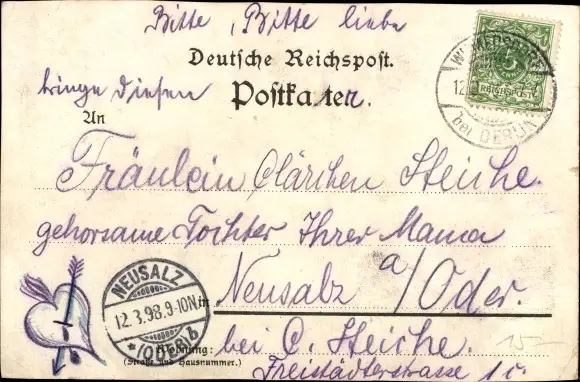 Bitte, Bitte liebe
Deutsche Reichspost.
bringe diesen Postkarten.
An
REICHSPOST
WILMERSDORF
12.
bei BERLIN
Fräulein Clärchen Steiche.
gehorsame Tochter Ihrer Mama
in Neusalz a/Oder.
NEUSALZ
12.3.98.9-10N
*(ODER)b
Wohnung: bei C. Steiche.
(Straße und Hausnummer.)
Freistädterstrasse 1c.
15-